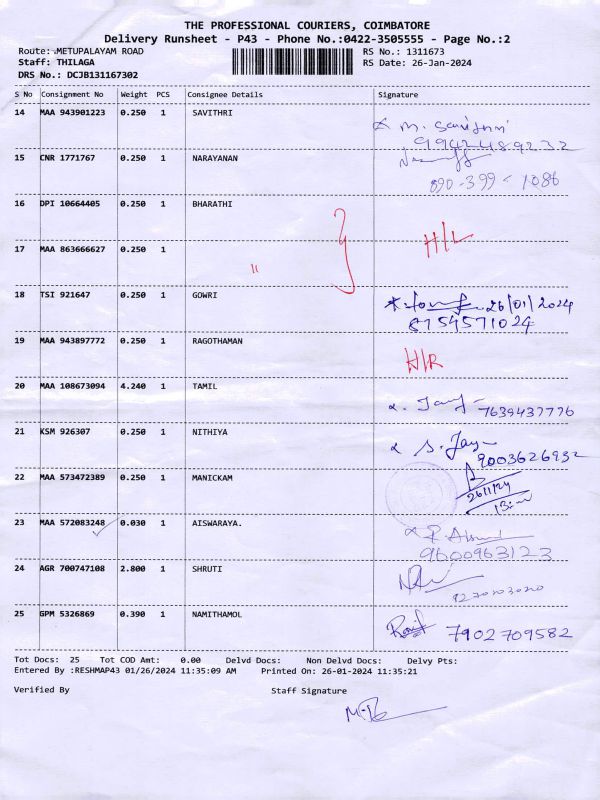 THE PROFESSIONAL COURIERS, COIMBATORE
Delivery Runsheet - P43 - Phone No.:0422-3505555 - Page No.:2
Route: METUPALAYAM ROAD RS No.: 1311673
Staff: THILAGA RS Date: 26-Jan-2024
DRS No.: DCJB131167302
S No Consignment No Weight PCS Consignee Details Signature
14 MAA 943901223 0.250 1 SAVITHRI
M. Savithri
9942489232
15 CNR 1771767 0.250 1 NARAYANAN
890-399-1086
16 DPI 10664405 0.250 1 BHARATHI
H/L
17 MAA 863666627 0.250 1 "
18 TSI 921647 0.250 1 GOWRI
26/01/2024
8754571024
19 MAA 943897772 0.250 1 RAGOTHAMAN
H/R
20 MAA 108673094 4.240 1 TAMIL
7639437776
21 KSM 926307 0.250 1 NITHIYA
9003626932
22 MAA 573472389 0.250 1 MANICKAM
26/1/24
23 MAA 572083248 0.030 1 AISWARAYA.
9600963123
24 AGR 700747108 2.800 1 SHRUTI
25 GPM 5326869 0.390 1 NAMITHAMOL
7902709582
Tot Docs: 25 Tot COD Amt: 0.00 Delvd Docs: Non Delvd Docs: Delvy Pts:
Entered By :RESHMAP43 01/26/2024 11:35:09 AM Printed On: 26-01-2024 11:35:21
Verified By Staff Signature